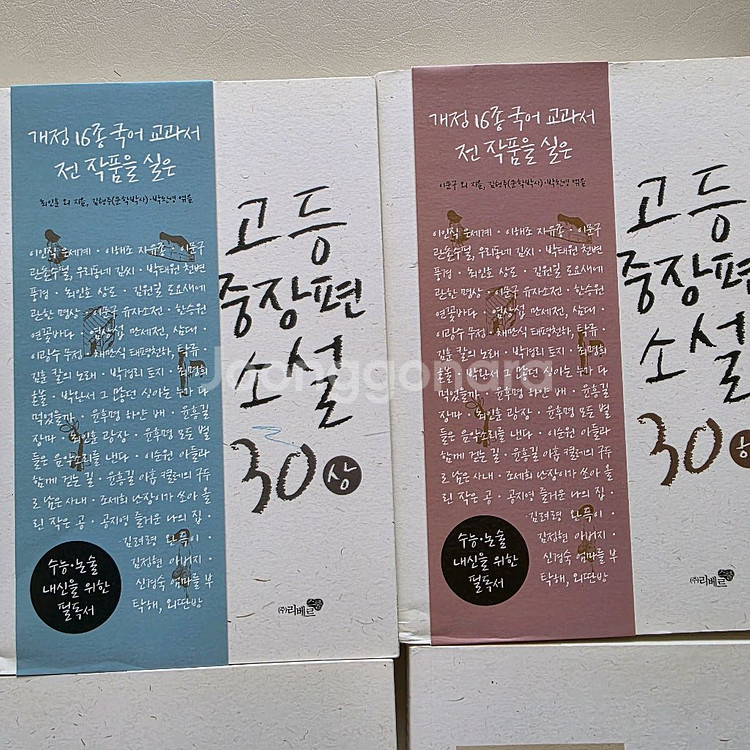 개정 16종 국어 교과서
전 작품을 실은
최인훈 외 지음, 김형주(문학박사)·박찬영 엮음
이인직 은세계 · 이해조 자유종 · 이문구
관촌수필, 우리동네 김씨 · 박태원 천변
풍경 · 최인호 상도 · 김원일 도요새에
관한 명상 · 이문구 유자소전 · 한승원
연꽃바다 · 염상섭 만세전, 삼대 ·
이광수 무정 · 채만식 태평천하, 탁류 ·
김훈 칼의 노래 · 박경리 토지 · 최명희
혼불 · 박완서 그 많던 싱아는 누가 다
먹었을까 · 윤후명 하얀 배 · 윤흥길
장마 · 최인훈 광장 · 윤후명 모든 별
들은 음악소리를 낸다 · 이순원 아들과
함께 걷는 길 · 윤흥길 아홉 켤레의 구두
로 남은 사내 · 조세희 난장이가 쏘아 올
린 작은 공 · 공지영 즐거운 나의 집
·김려령 완득이 ·
김정현 아버지 ·
신경숙 엄마를 부
탁해, 외딴방
수능·논술
내신을 위한
필독서
고등
중장편
소설
30 상
(주)리베르
개정 16종 국어 교과서
전 작품을 실은
이문구 외 지음, 김형주(문학박사)·박찬영 엮음
이인직 은세계 · 이해조 자유종 · 이문구
관촌수필, 우리동네 김씨 · 박태원 천변
풍경 · 최인호 상도 · 김원일 도요새에
관한 명상 · 이문구 유자소전 · 한승원
연꽃바다 · 염상섭 만세전, 삼대 ·
이광수 무정 · 채만식 태평천하, 탁류 ·
김훈 칼의 노래 · 박경리 토지 · 최명희
혼불 · 박완서 그 많던 싱아는 누가 다
먹었을까 · 윤후명 하얀 배 · 윤흥길
장마 · 최인훈 광장 · 윤후명 모든 별
들은 음악소리를 낸다 · 이순원 아들과
함께 걷는 길 · 윤흥길 아홉 켤레의 구두
로 남은 사내 · 조세희 난장이가 쏘아 올
린 작은 공 · 공지영 즐거운 나의 집 ·
·김려령 완득이 ·
김정현 아버지 ·
신경숙 엄마를 부
탁해, 외딴방
수능·논술
내신을 위한
필독서
고등
중장편
소설
30 하
(주)리베르
Joonggonara